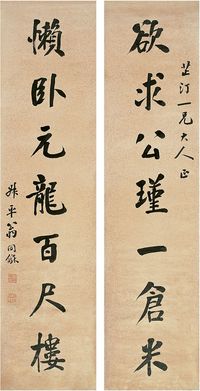 欲求公瑾一倉米
芷汀一兄大人正
懶卧元龍百尺樓
叔平翁同龢